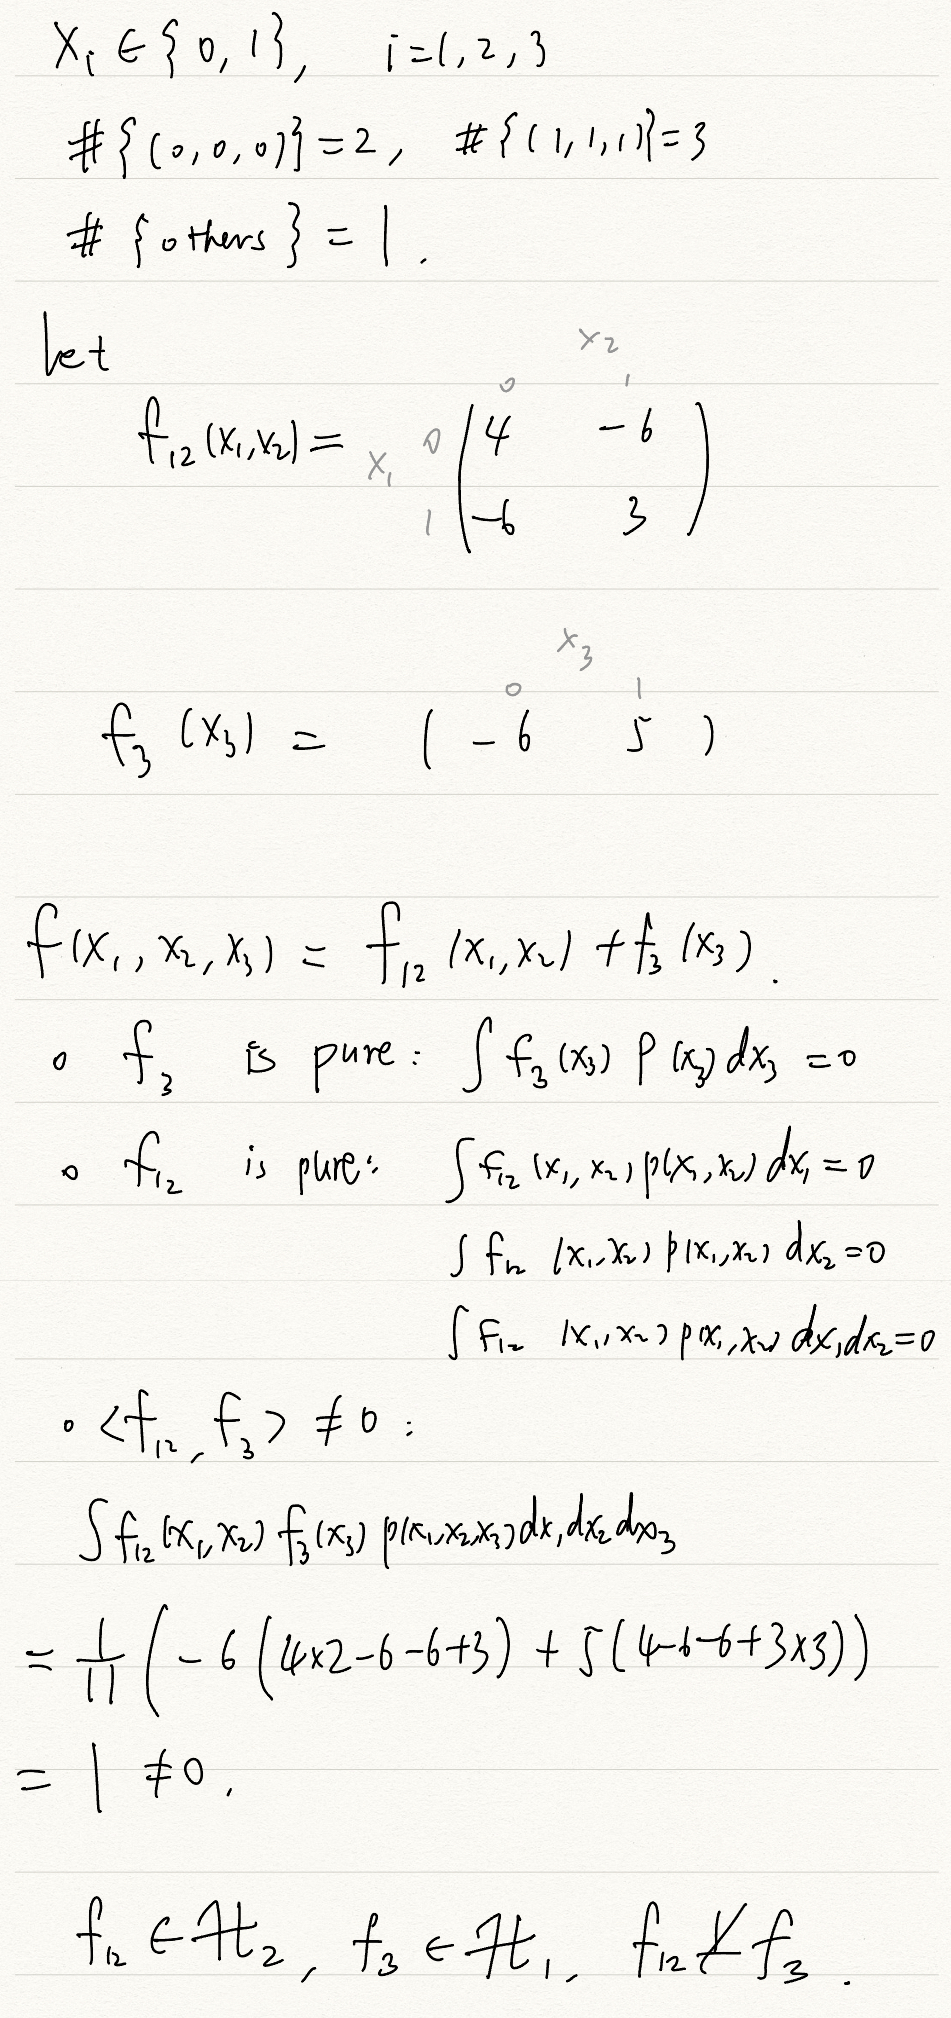 X_i ∈ {0, 1}, i=1, 2, 3
#{(0,0,0)}=2, #{(1,1,1)}=3
#{others} = 1.
let
x_2
0 1
f_12(x_1,x_2) = x_1 0 ( 4 -6
1 -6 3 )
x_3
0 1
f_3(x_3) = ( -6 5 )
f(x_1, x_2, x_3) = f_12(x_1,x_2) + f_3(x_3).
∘ f_3 is pure: ∫ f_3(x_3) p(x_3) dx_3 = 0
∘ f_12 is pure: ∫ f_12(x_1,x_2) p(x_1,x_2) dx_1 = 0
∫ f_12(x_1,x_2) p(x_1,x_2) dx_2 = 0
∫ f_12(x_1,x_2) p(x_1,x_2) dx_1dx_2 = 0
∘ <f_12, f_3> ≠ 0 :
∫ f_12(x_1,x_2) f_3(x_3) p(x_1,x_2,x_3) dx_1dx_2dx_3
= 1/11 ( -6(4×2-6-6+3) + 5(4-6-6+3×3))
= 1 ≠0.
f_12 ∈ ℋ_2, f_3 ∈ ℋ_1, f_12 ⊥̸ f_3.